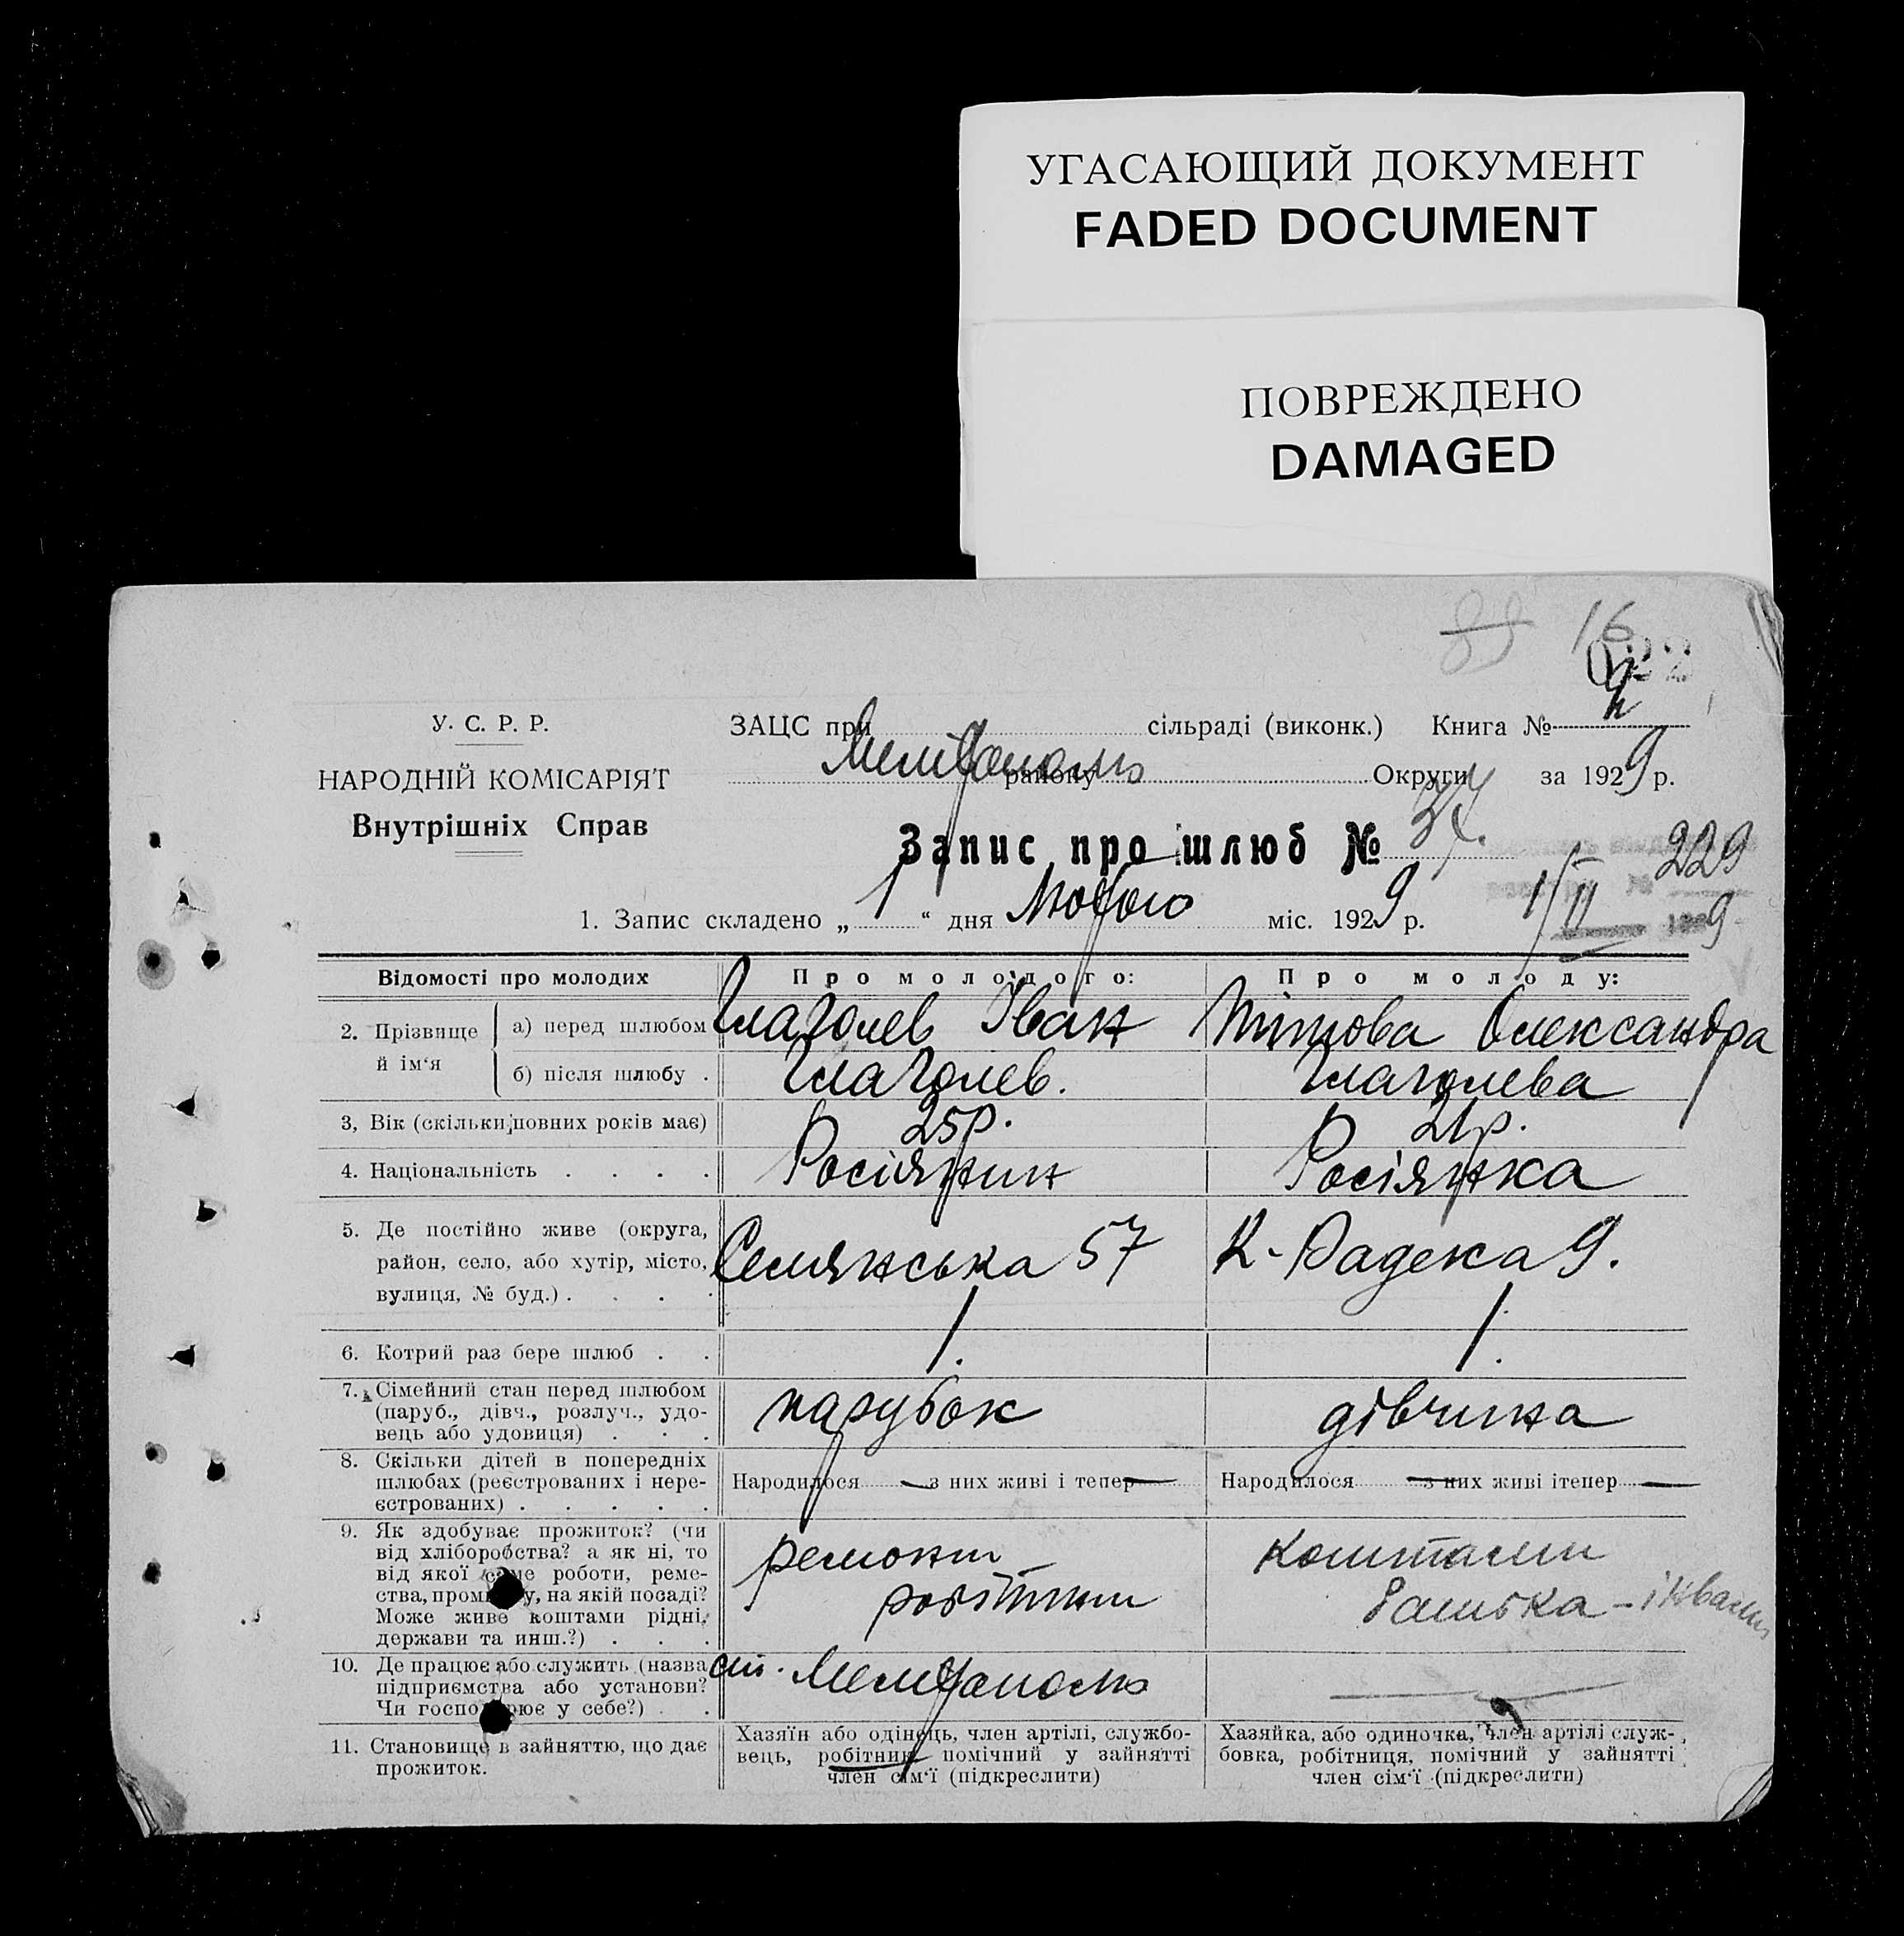 УГАСАЮЩИЙ ДОКУМЕНТ
FADED DOCUMENT
ПОВРЕЖДЕНО
DAMAGED
16
У. С. Р. Р.
НАРОДНІЙ КОМІСАРІЯТ
Внутрішніх Справ
ЗАЦС при сільраді (виконк.) Книга №
Мелітополь району Округи за 1929 р.
Запис про шлюб № 34.
229
1. Запис складено „1“ дня Лютого міс. 1929 р.
1/II 1929
Відомості про молодих Про молодого: Про молоду:
2. Прізвище й ім'я
а) перед шлюбом Глаголев Іван Тітова Олександра
б) після шлюбу . Глаголев. Глаголева
3, Вік (скільки повних років має) 25р. 21р.
4. Національність . . . . Росіянин Росіянка
5. Де постійно живе (округа,
район, село, або хутір, місто,
вулиця, № буд.) . . . .
Селянська 57 К-Радека 9.
6. Котрий раз бере шлюб . . 1. 1.
7. Сімейний стан перед шлюбом
(паруб., дівч., розлуч., удо-
вець або удовиця) . . .
парубок дівчина
8. Скільки дітей в попередніх
шлюбах (реєстрованих і нере-
єстрованих) . . . . .
Народилося — з них живі і тепер —
Народилося — з них живі ітепер —
9. Як здобуває прожиток? (чи
від хліборобства? а як ні, то
від якої саме роботи, реме-
ства, промислу, на якій посаді?
Може живе коштами рідні,
держави та инш.?) . . .
ремонт
робітник
Коштами
батька -
10. Де працює або служить (назва
підприємства або установи?
Чи господарює у себе?) . .
ст. Мелітополь —
11. Становище в зайняттю, що дає
прожиток.
Хазяїн або одінець, член артілі, службо-
вець, робітник помічний у зайнятті
член сім'ї (підкреслити)
Хазяйка, або одиночка, член артілі служ-
бовка, робітниця, помічний у зайнятті
член сім'ї (підкреслити)